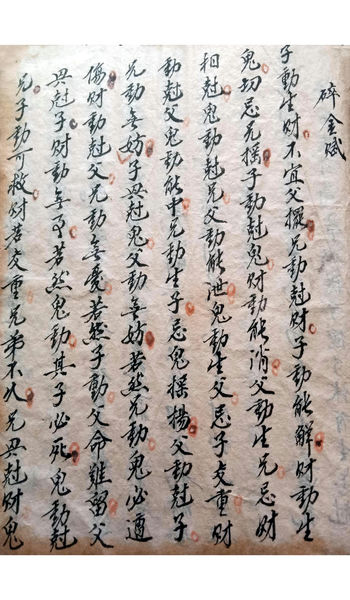 碎金賦
子動生財不宜父擺兄動尅財子動能解財動生
鬼切忌兄摇子動尅鬼財動能消父動生兄忌財
相尅鬼動尅兄父動能泄鬼動生父忌子交重財
動尅父鬼動能中兄動生子忌鬼摇揚父動尅子
兄動無妨子興尅鬼父動無妨若然兄動鬼必遭
傷財動尅父兄動無憂若然子動父命難留父
興尅子財動無事若然鬼動其子必死鬼動尅
兄子動可救財若交重兄弟不久兄興尅財鬼